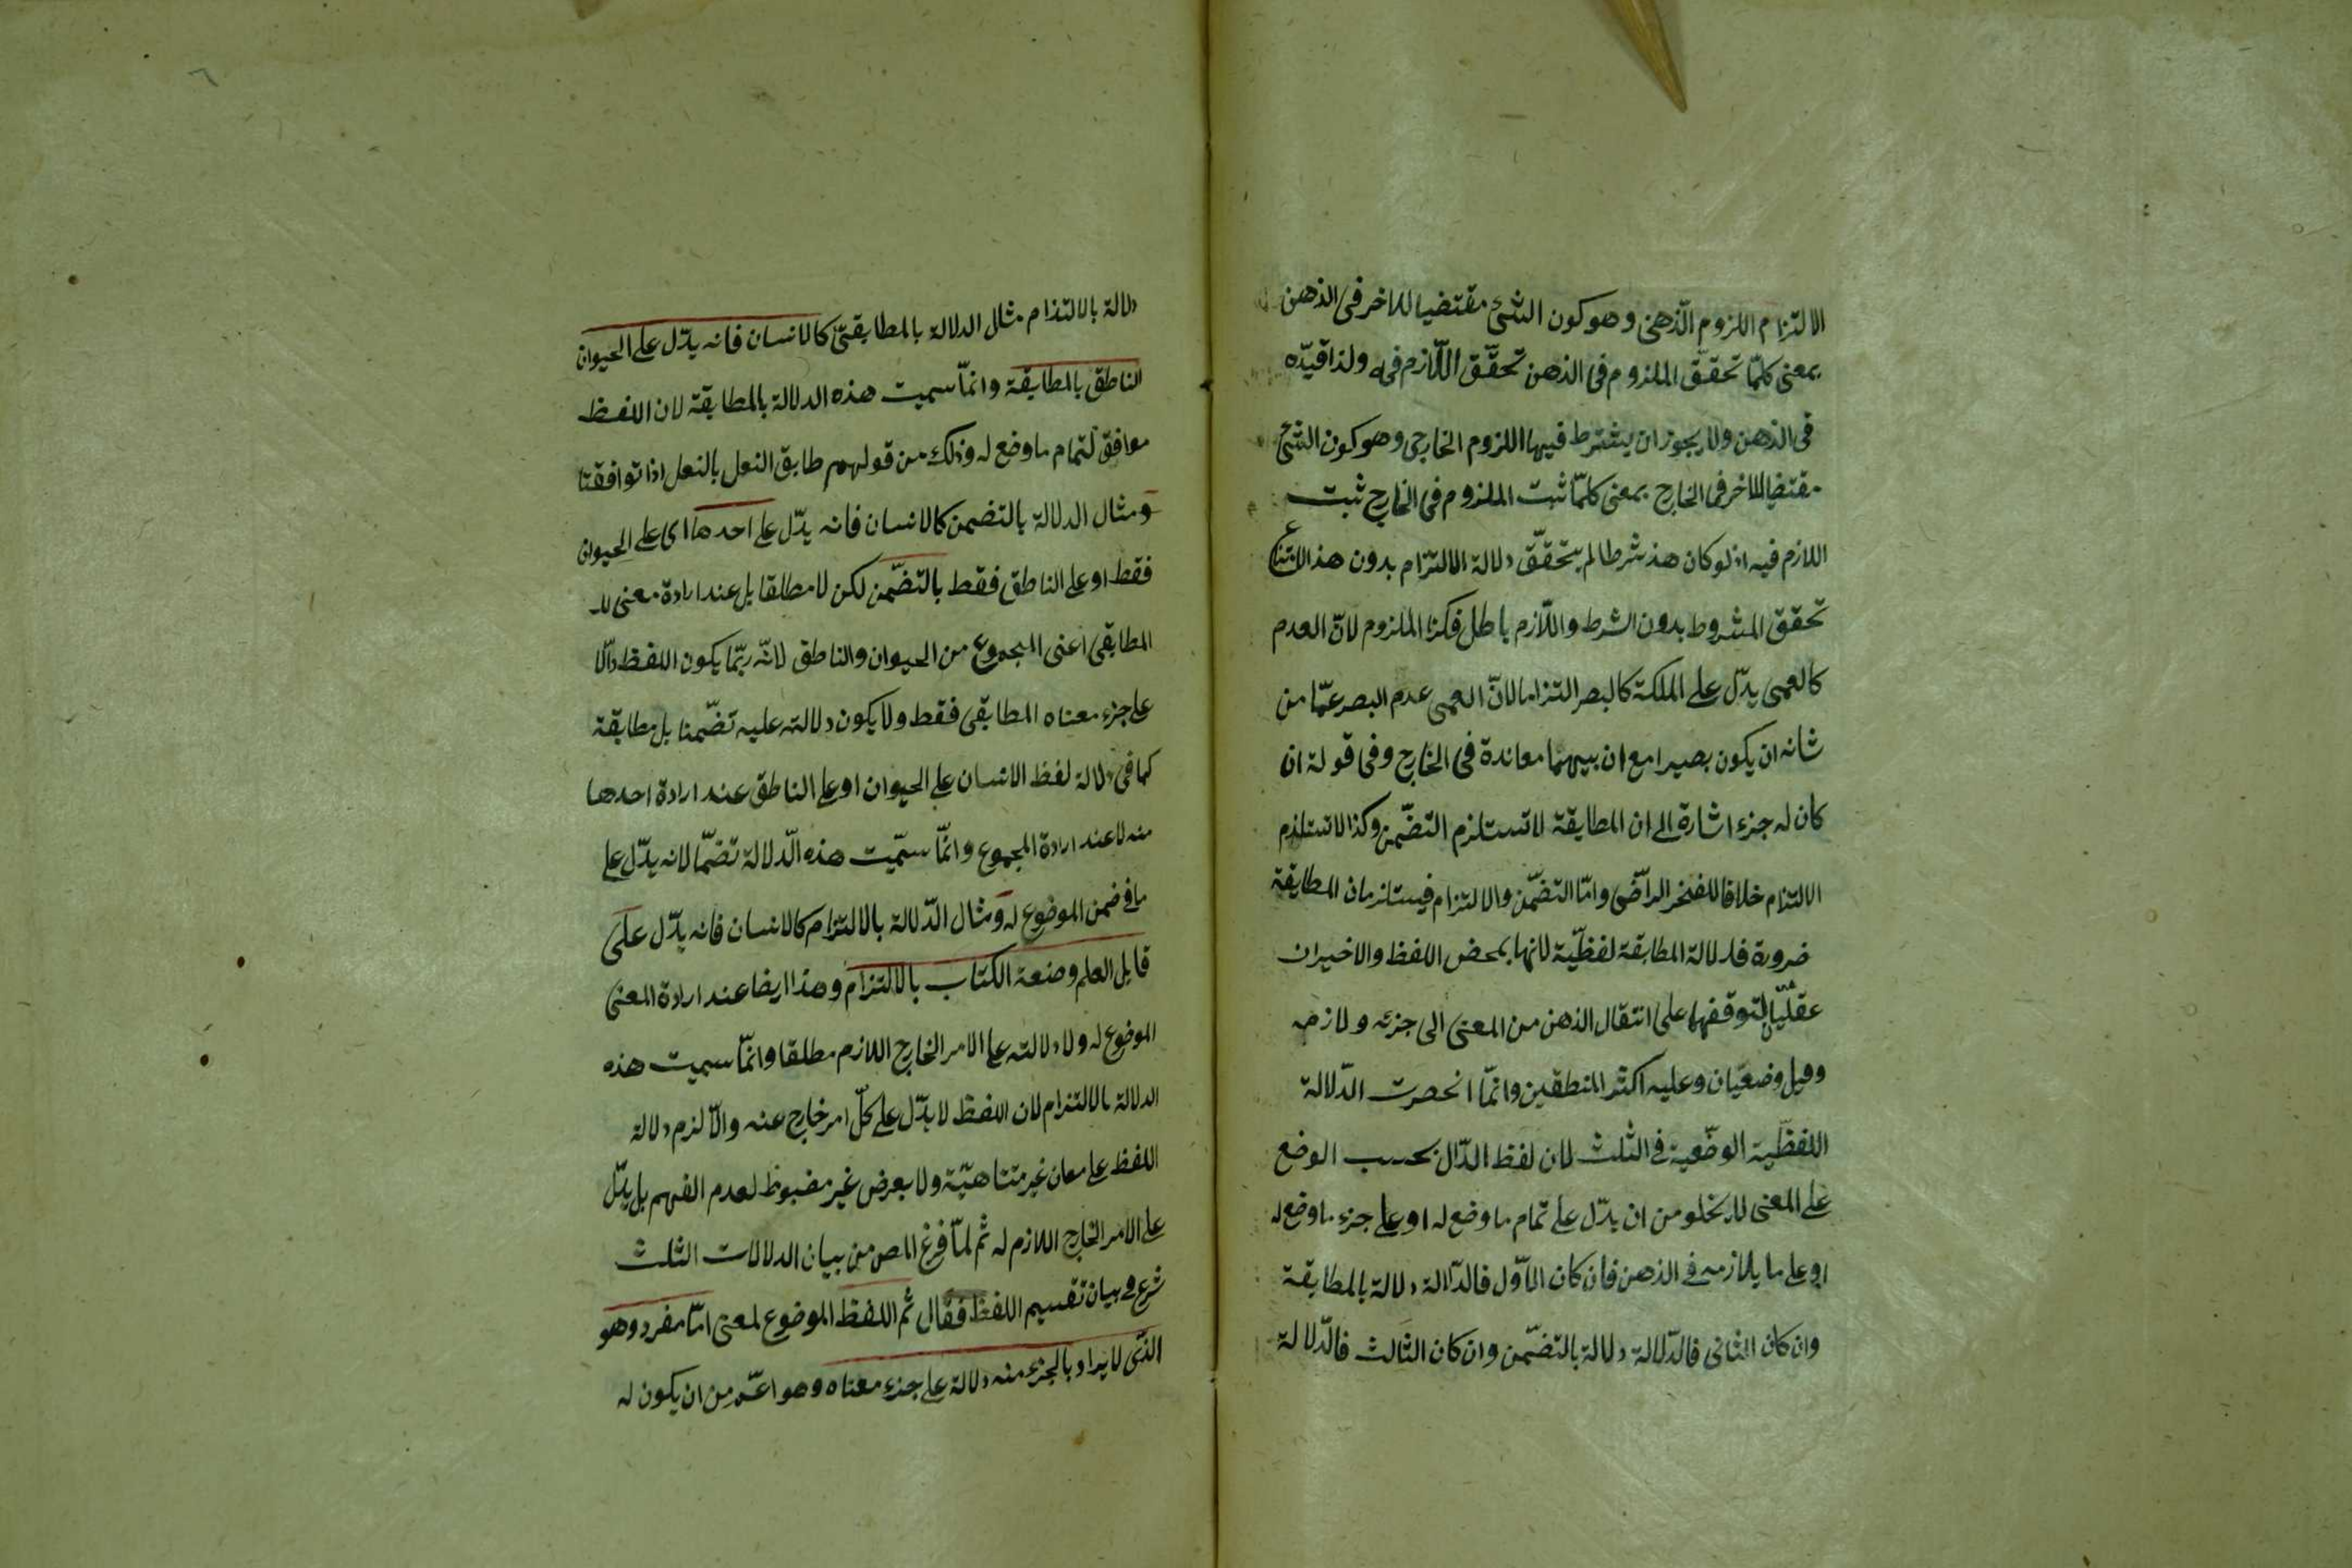 الالتزام اللزوم الذهنى وهو كون الشئ مقتضيا للاخر فى الذهن
بمعنى كلمّا تحقّق الملزوم فى الذهن تحقّق اللّازم فيه ولذا قيّده
فى الذهن ولا يجوز ان يشترط فيها اللزوم الخارجى وهو كون الشئ
مقتضيا للاخر فى الخارج بمعنى كلمّا ثبت الملزوم فى الخارج ثبت
اللازم فيه اذ لو كان هذ شرطا لم يتحقّق دلالة الالتزام بدون هذ لامتناع
تحقق المشروط بدون الشرط واللّازم باطل فكذا الملزوم لانّ العدم
كالعمى يدّل على الملكة كالبصر التزاما لانّ العمى عدم البصر عمّا من
شانه ان يكون بصيرا مع ان بينهما معاندة فى الخارج وفى قوله ان
كان له جزء اشارة الى ان المطابقة لا تستلزم التضّمن وكذا لا تستلزم
الالتزام خلافا للفخر الراّضى وامّا التضّمن والالتزام فيستلزمان المطابقة
ضرورة فدلالة المطابقة لفظيّة لانها بمحض اللفظ والاخيران
عقليّان لتوقفهما على انتقال الذهن من المعنى الى جزئه ولازمه
وقيل وضعيّان وعليه اكثر المنطقين وانمّا انحصرت الدّلالة
اللفظّية الوضّعية فى الثلث لان لفظ الدّال بحسب الوضع
على المعنى لا يخلو من ان يدّل على تمام ما وضع له او على جزء ما وضع له
او على ما يلازمه فى الذهن فان كان الاوّل فالدّالة دلالة بالمطابقة
وان كان الثانى فالدّلالة دلالة بالتضّمن وان كان الثالث فالدّلالة
دلالة بالالتذام مثال الدلالة بالمطابقتىّ كالانسان فانه يدّل على الحيوان
الناطق بالمطابقة وانمّا سميت هذه الدلالة بالمطابقة لان اللفظ
موافق لتمام ما وضع له وذلك من قولهم طابق النعل بالنعل اذا توافقتا
ومثال الدلالة بالتضمن كالانسان فانه يدّل على احدهما اى على الحيوان
فقط او على الناطق فقط بالتضّمن لكن لا مطلقا بل عند ارادة معنى للـ
المطابقى اعنى المجموع من الحيوان والناطق لانّه ربّما يكون اللفظ دالّا
على جزء معناه المطابقى فقط ولا يكون دلالته عليه تضّمنا بل مطابقة
كما فى دلالة لفظ الانسان على الحيوان او على الناطق عند ارادة احدهما
منه لا عند ارادة المجموع وانمّا سمّيت هذه الدّلالة تضمّا لانه يدّل على
ما فى ضمن الموضوع له ومثال الدّلالة بالالتزام كالانسان فانه يدّل على
قابل العلم وصنعة الكتاب بالالتزام وهذا ايضا عند ارادة المعنى
الموضوع له ولا دلالته على الامر الخارج اللازم مطلقا وانمّا سميت هذه
الدلالة بالالتزام لان اللفظ لا يدّل على كلّ امر خارج عنه والّا لزم دلالة
اللفظ على معان غير متناهيّة ولا بعرض غير مضبوط لعدم الفهم بل يدّل
على الامر الخارج اللازم له ثم لمّا فرغ المص من بيان الدلالات الثلث
شرع فى بيان تقسيم اللفظ فقال ثم اللفظ الموضوع لمعنى امّا مفرد وهو
الذّى لا يراد بالجزء منه دلالة على جزء معناه وهو اعمّ من ان يكون له